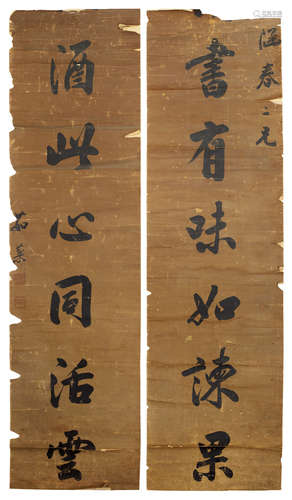 涵春二兄
書有味如諫果
酒此心同活雲
茹棻